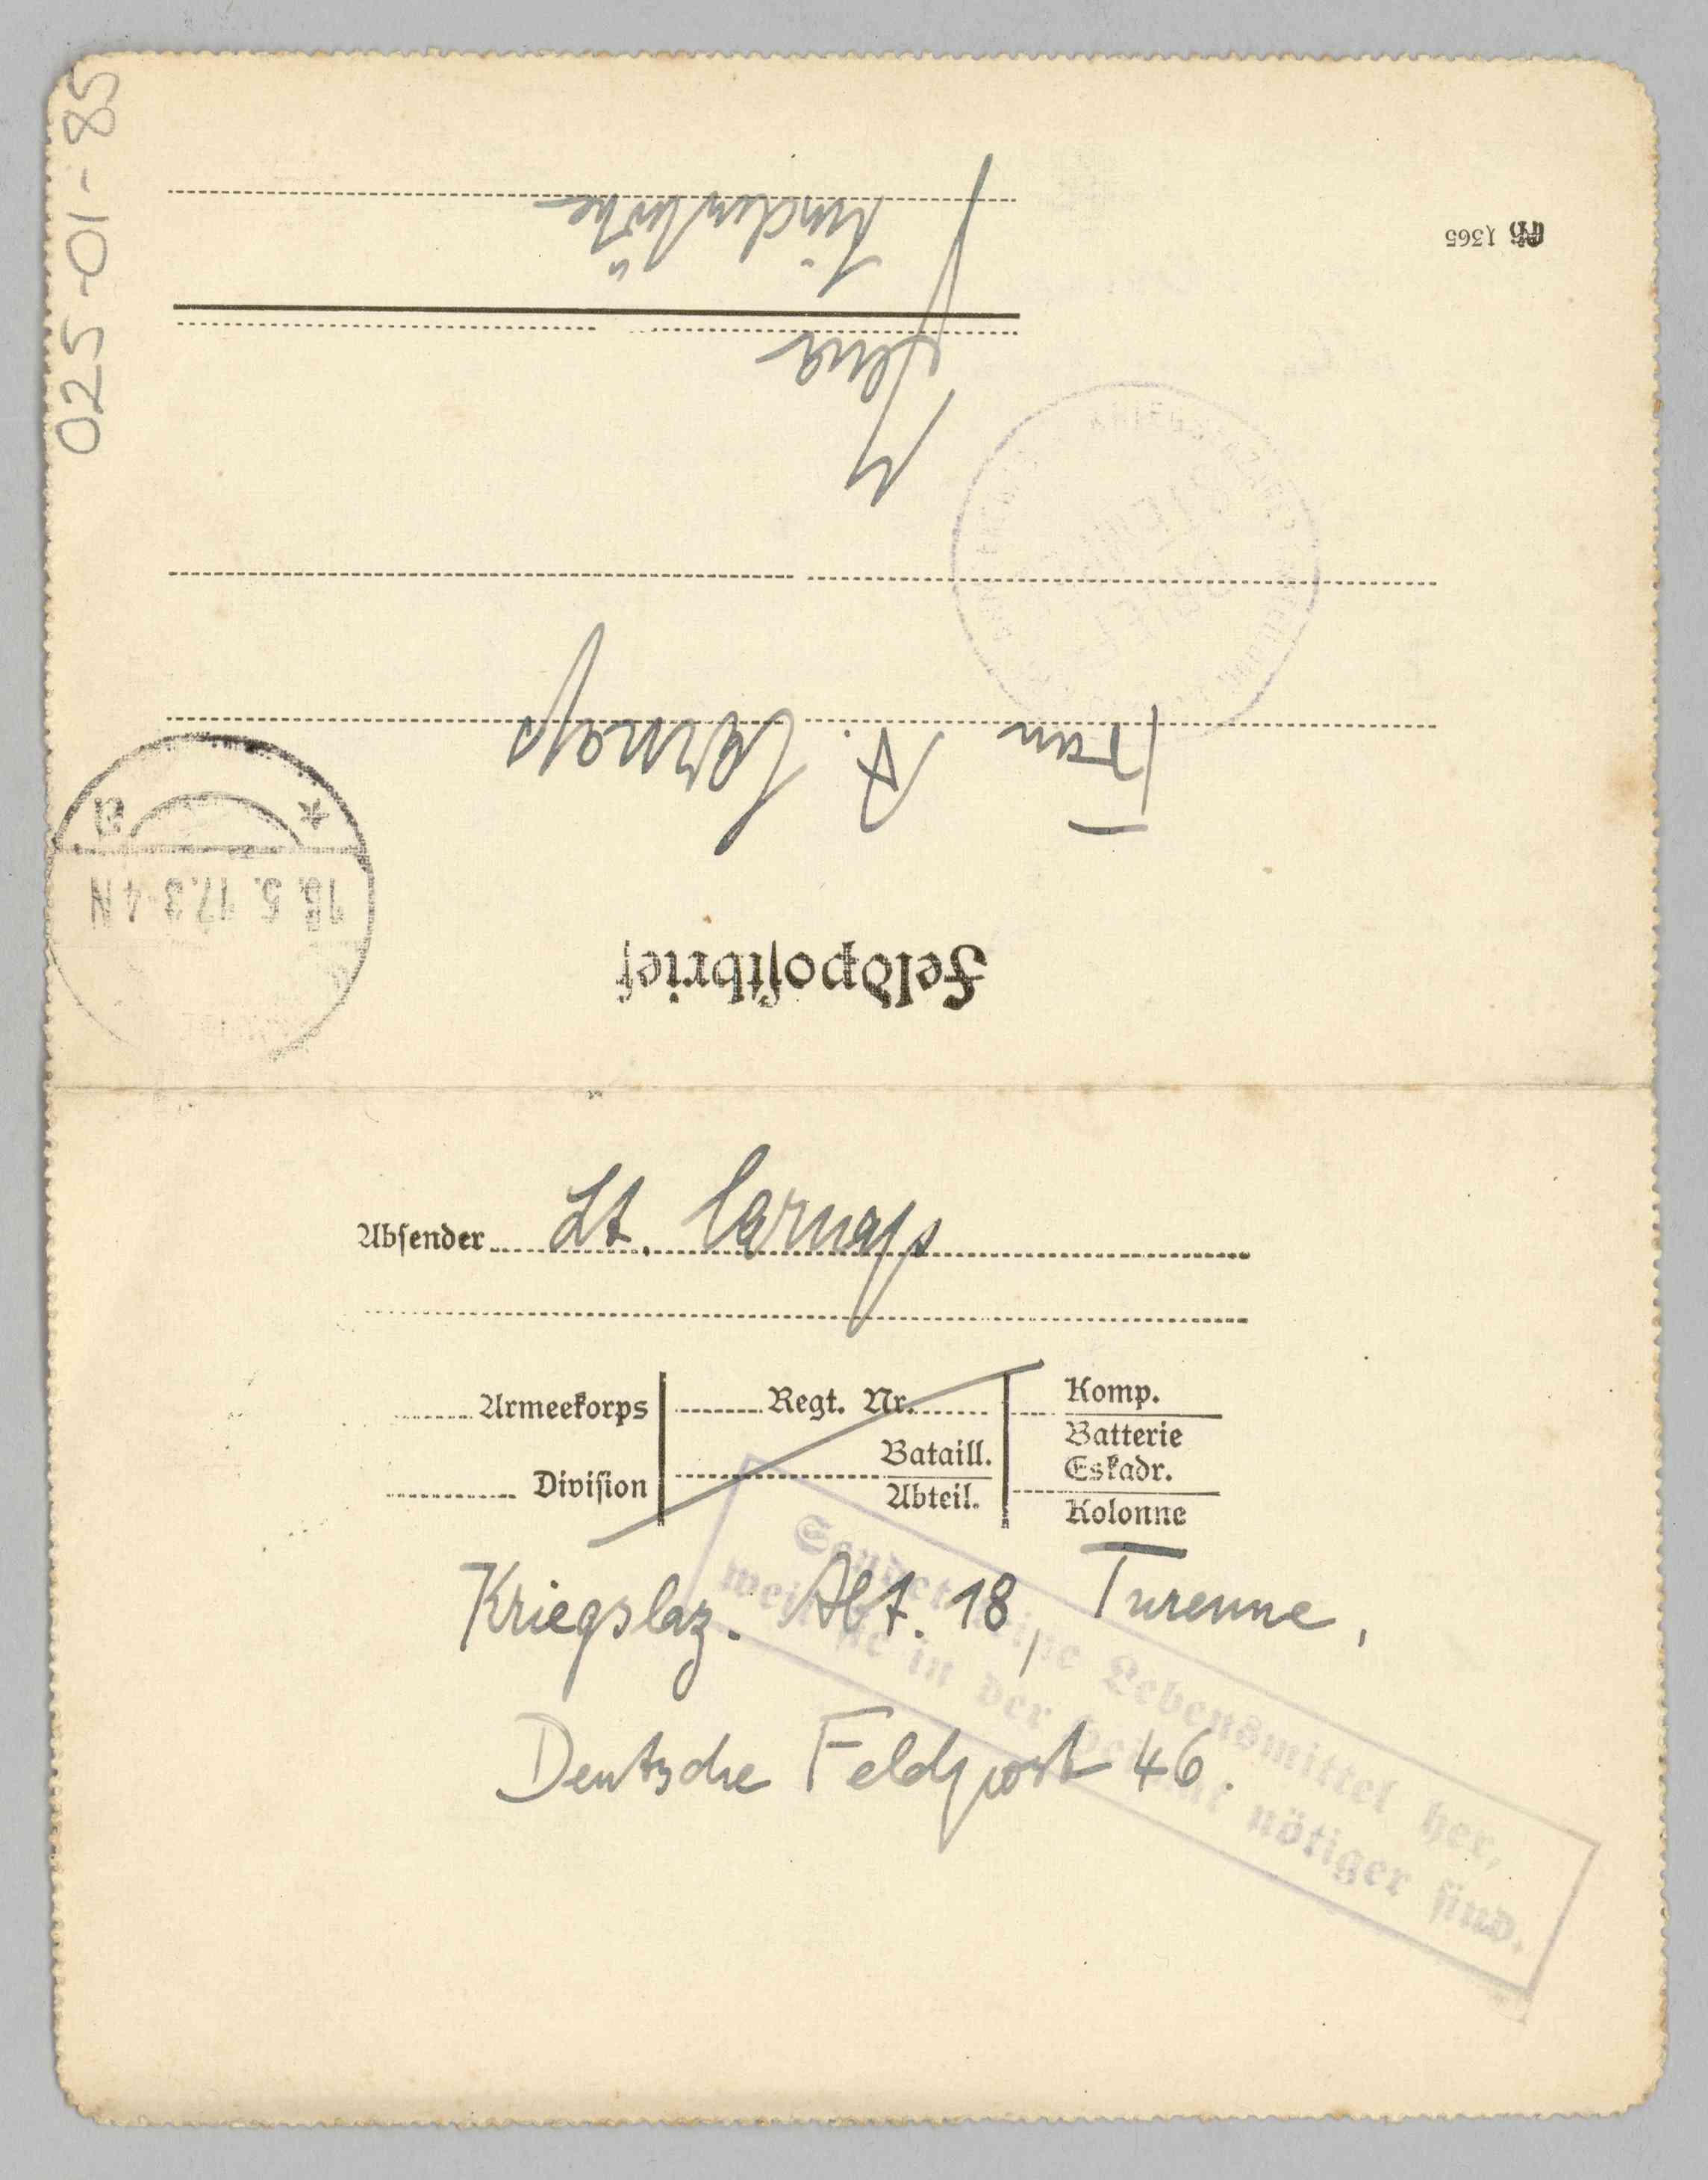 025-01-85
Feldpostbrief
Frau A. Carnap
Jena
1365
18.5.17.3-4N
a
BRIEF
STEMPEL
Absender Lt. Carnap
Armeekorps
Regt. Nr.
Komp.
Bataill.
Batterie
Eskadr.
Division
Abteil.
Kolonne
Kriegslaz. Abt. 18, Turenne,
Deutsche Feldpost 46.
Sendet keine Lebensmittel her,
weil sie in der Heimat nötiger sind.